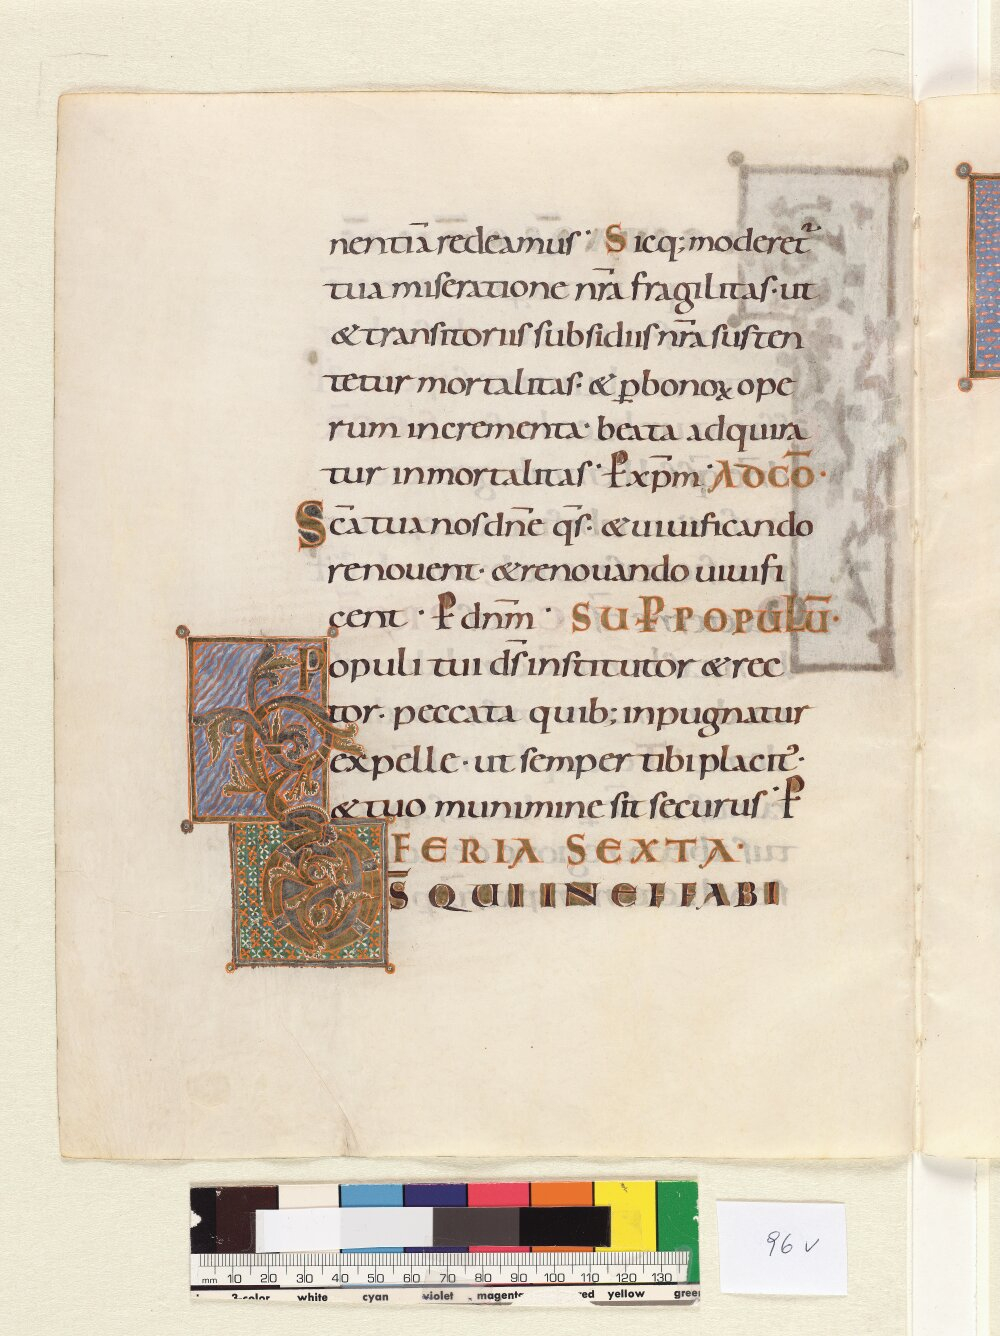 nentiā redeamus· Sicq; moderet᷑
tua miseratione nr̄a fragilitas· ut
& transitoriis subsidiis nr̄a susten
tetur mortalitas· & ꝑ bonoꝝ ope
rum incrementa· beata adquira
tur inmortalitas· P xp̄m· AD CŌ·
Sc̄a tua nos dn̄e q̄s· & uiuificando
renouent· & renouando uiuifi
cent· P dnm̄· SUP POPULŪ·
Populi tui ds̄ institutor & rec
tor· peccata quib; inpugnatur
expelle· ut semper tibi placit᷑·
& tuo munimine sit securus· P
FERIA SEXTA·
DS̄ QUI INEFFABI
96 v
mm 10 20 30 40 50 60 70 80 90 100 110 120 130
3-color white cyan violet magenta red yellow green